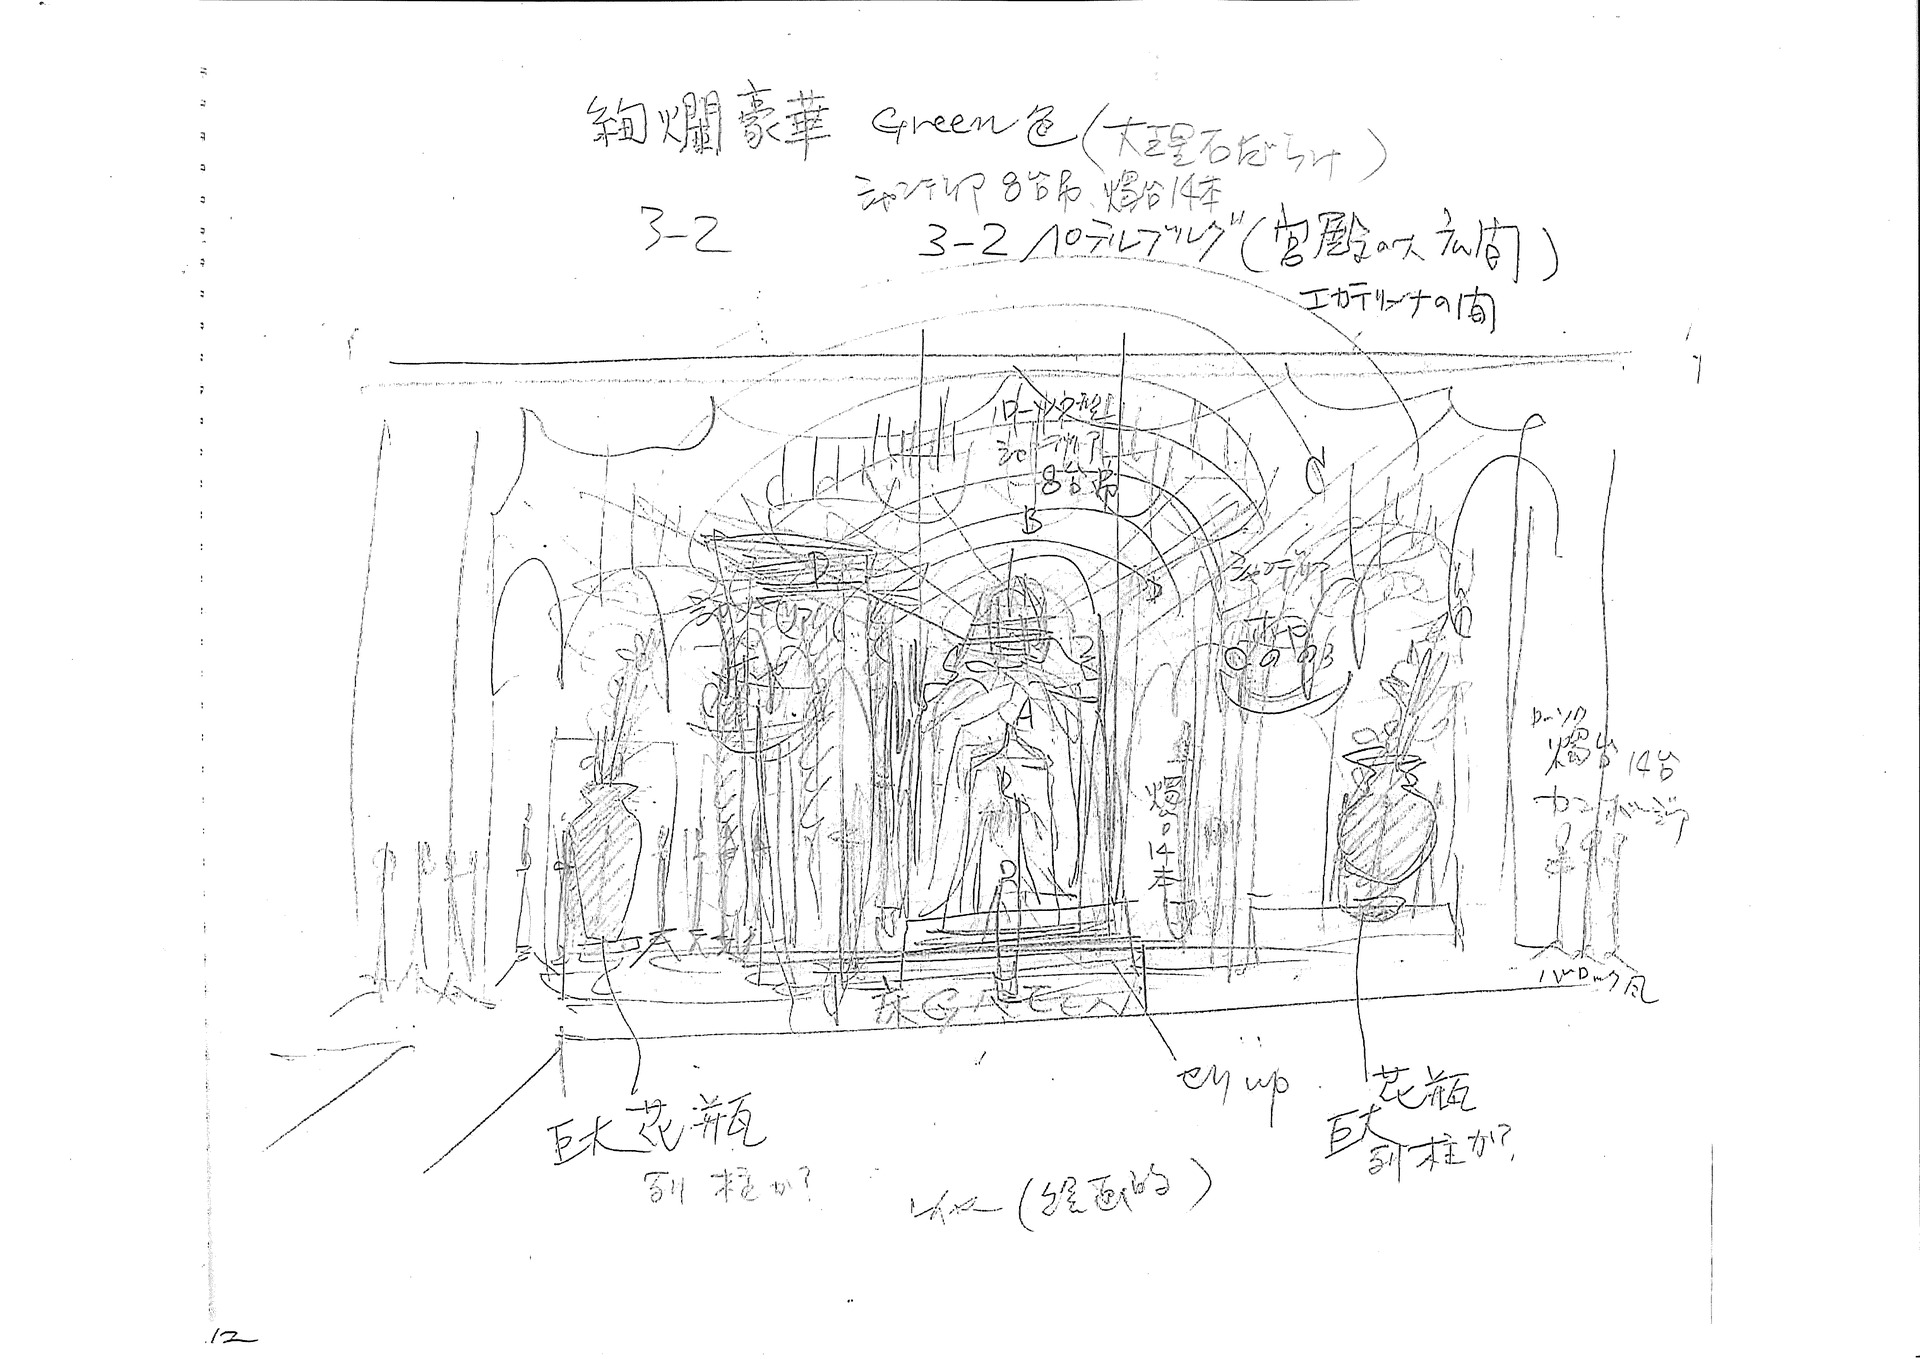 絢爛豪華 Green色(大理石だらけ)
シャンデリア 8台吊、燭台14本
3-2
3-2 ペテルブルグ(宮殿の大広間)
エカテリーナの間
ローソク型
シャンデリア
8台吊
C
B
D
シャンデリア
シャンデリア
A
ローソク
燭台 14台
燭台14本
GREEN
バロック風
セリup
巨大花瓶
列柱か?
花瓶
巨大
列柱か?
(絵画的)
12